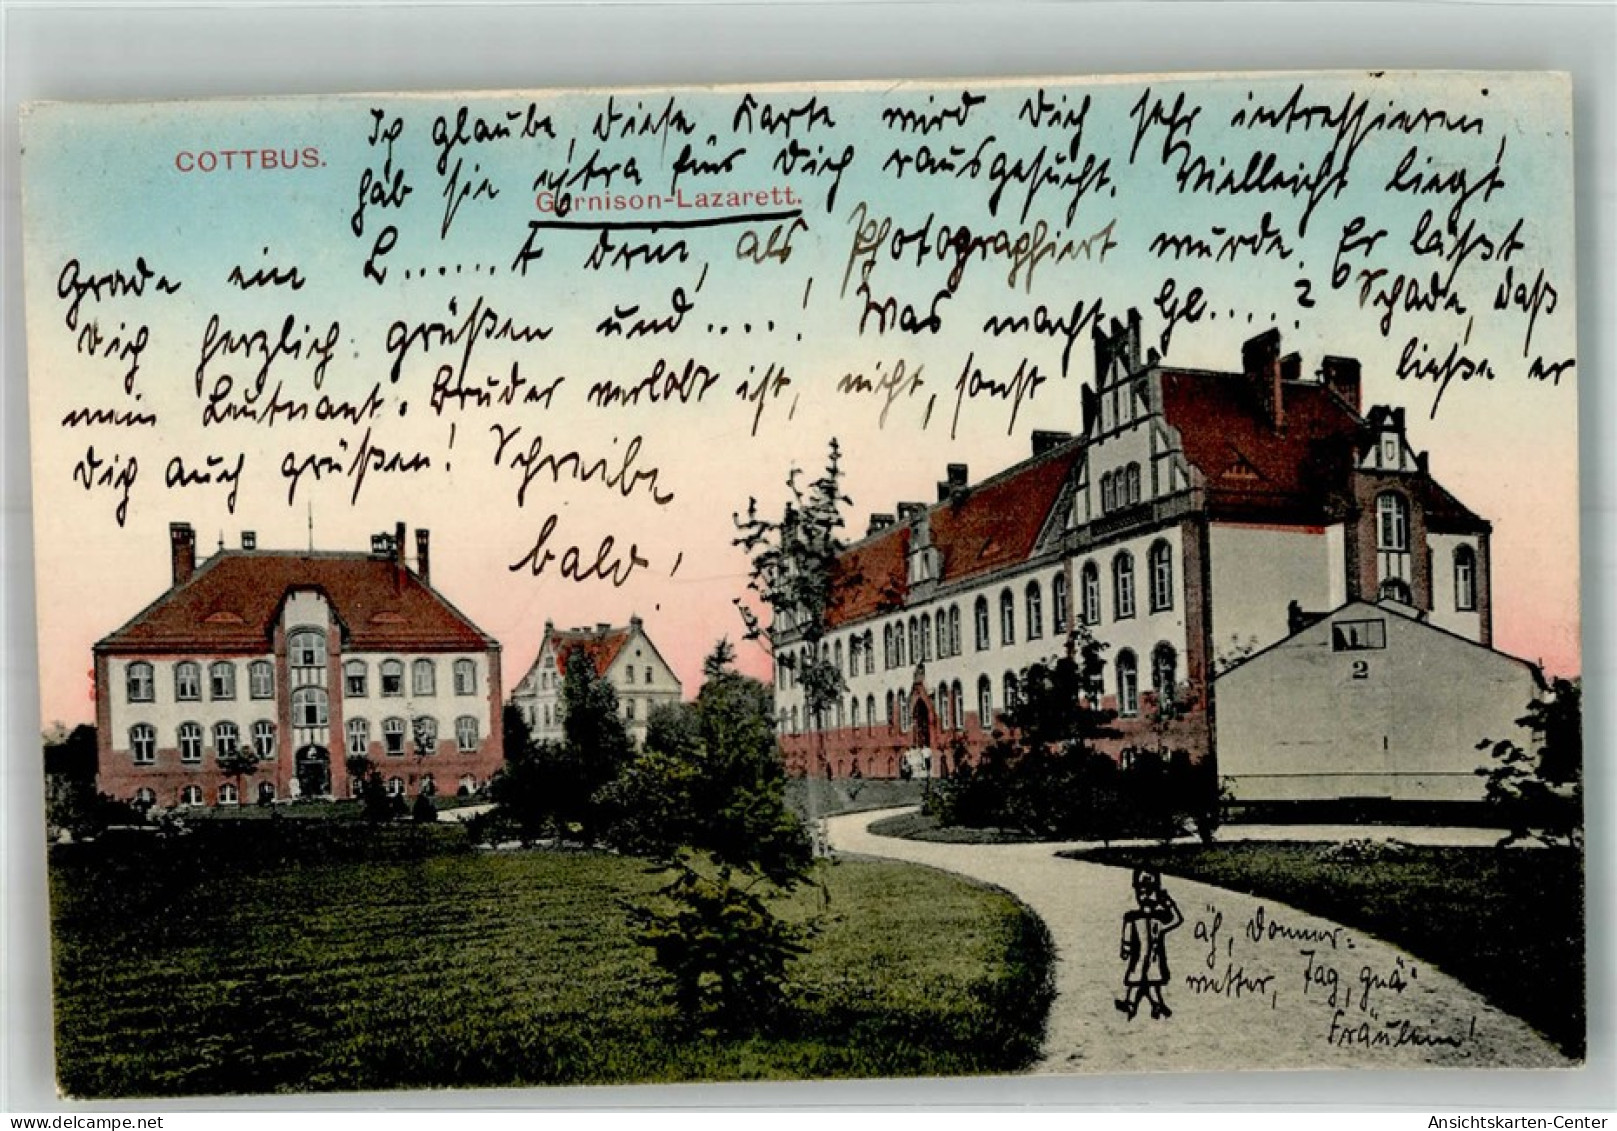 COTTBUS.
Garnison-Lazarett.
Ich glaube, diese Karte wird Dich sehr intressieren,
hab sie extra für Dich rausgesucht. Vielleicht liegt
Grade ein L......t drin, als Photographiert wurde. Er läßt
Dich herzlich grüßen und ....! Was macht Hl.....? Schade, daß
mein Leutnant. Bruder verlobt ist, nicht, sonst ließe er
Dich auch grüßen! Schreibe
bald!
äh, Donner=
wetter, Tag, gnä
Fräulein!
2
AnsichtsKarten-Center